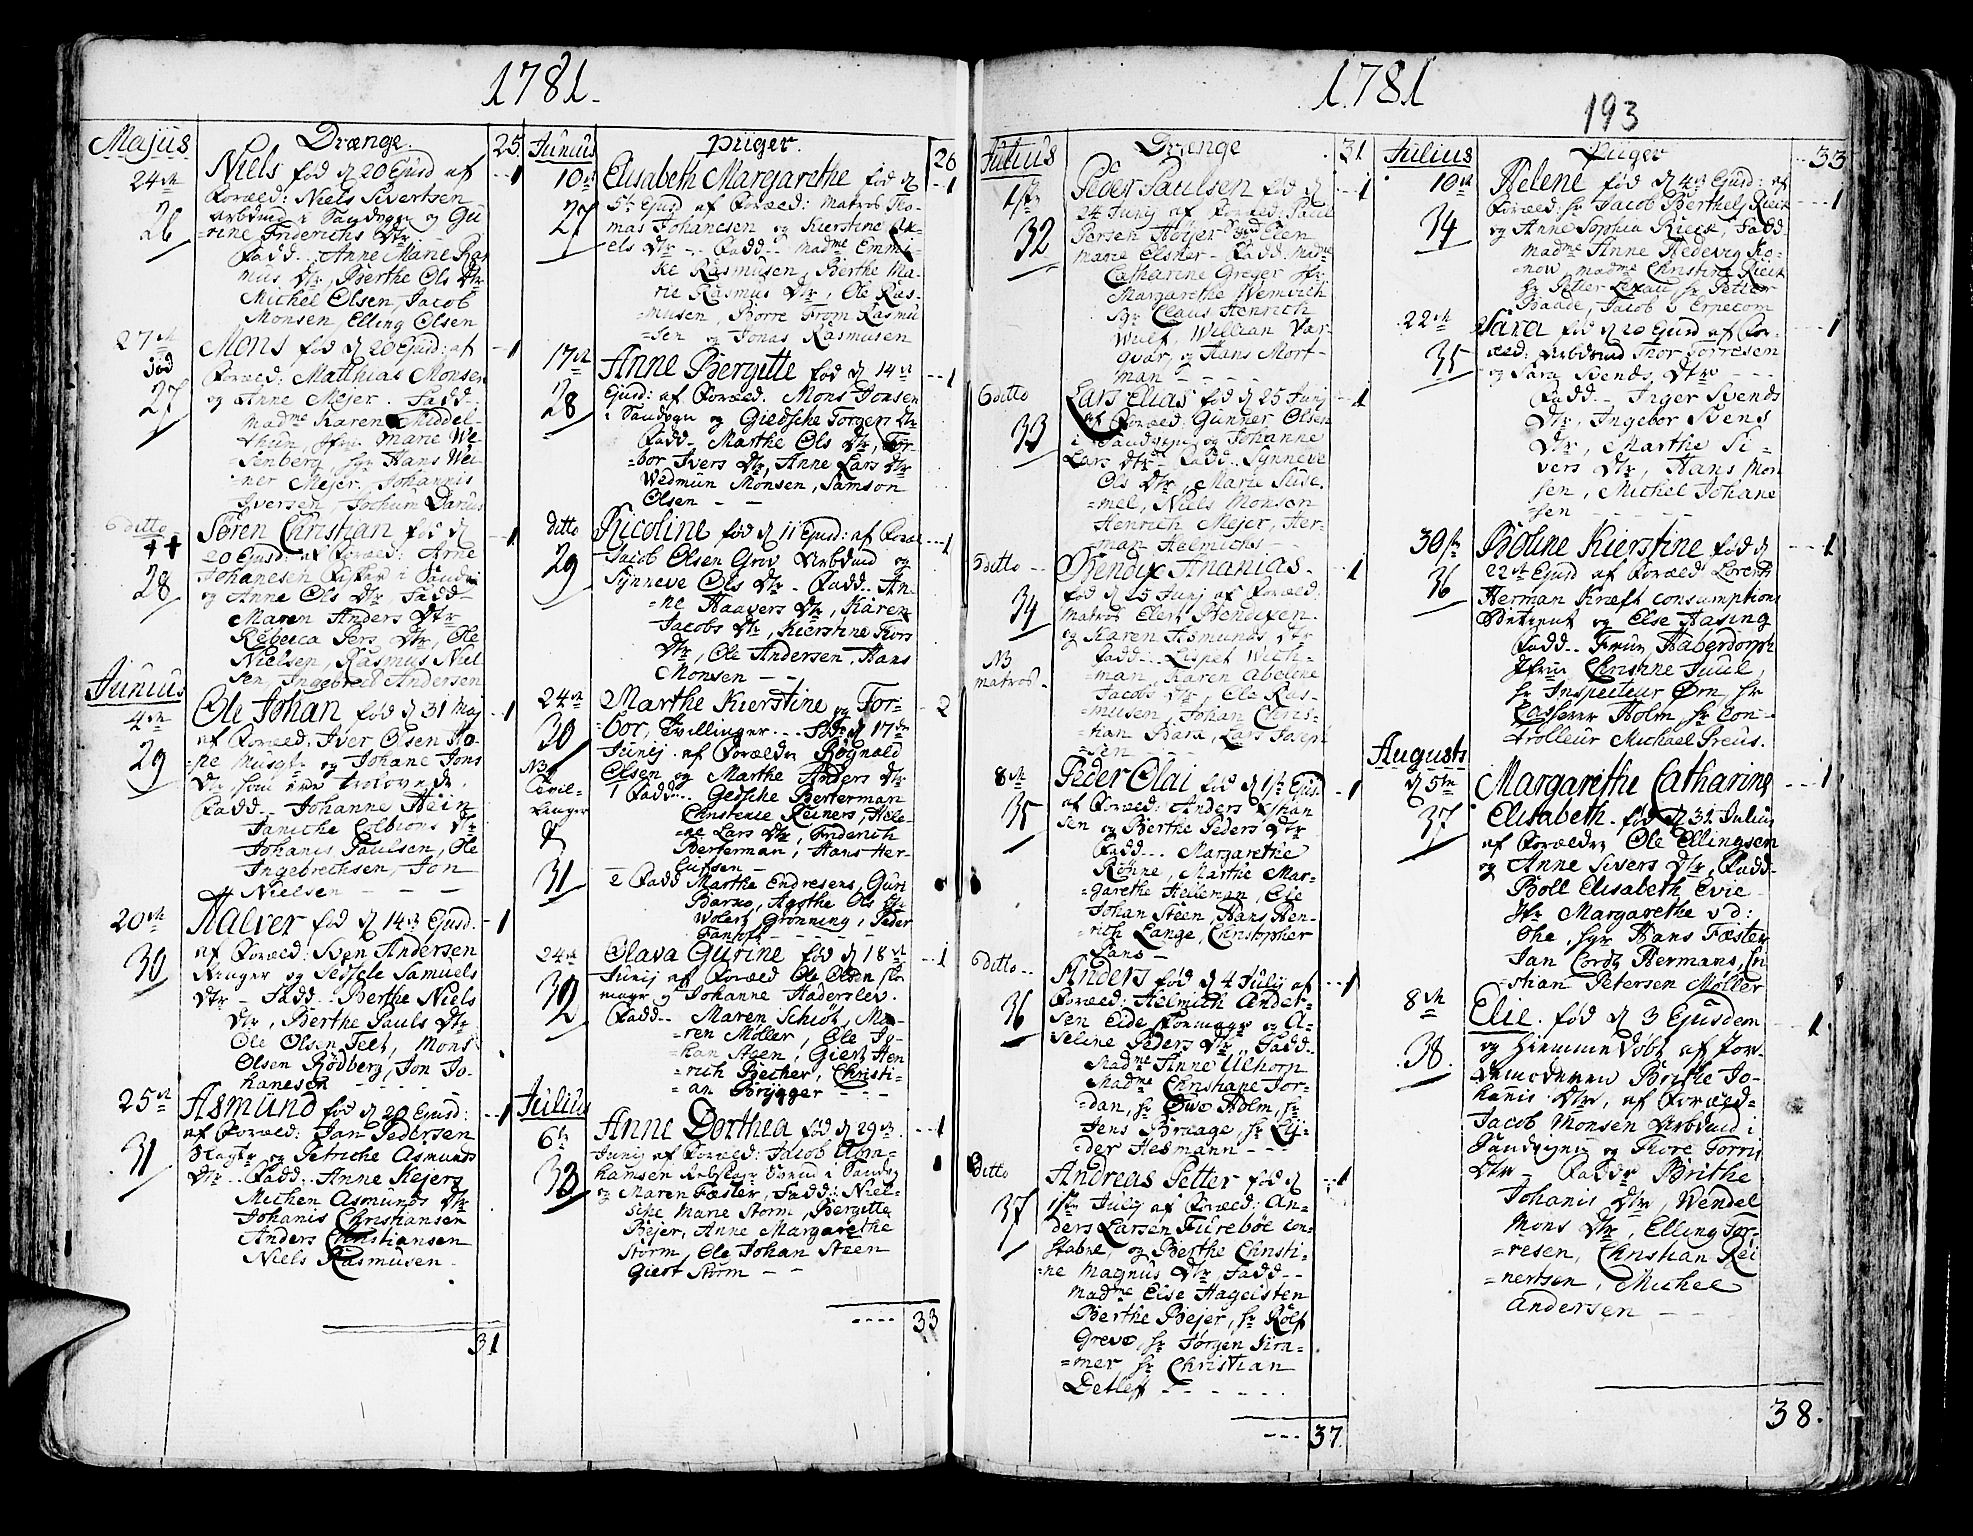 1781.
Majus
Drænge.
25.
24de
Niels fød d 20 Ejusd af
1
26
Foræld: Niels Sivertsen
Arbdmd i Sandvigen og Gu
rine Friderichs Dtr.
Fadd.. Anne Marie Ras
mus Dtr, Berthe Ols Dtr
Michel Olsen, Jacob
Monsen, Elling Olsen
27de
Mons fød d 20 Ejusd: af
1
27
Foræld: Matthias Monsen
og Anne Mejer. Fadd..
Madme Karen Middel-
thun Jfru Marie We-
senberg, Sgr Hans Wei-
ner Mejer, Johannis
Iversen, Jochum Darius
ditto
Søren Christian fød d
1
28
20 Ejusd: af Foræld: Arne
Johanesen Fisker i Sandv
og Anne Ols Dtr Fadd..
Maren Anders Dtr
Rebecca Pers Dtr, Ole
Nielsen, Rasmus Niel
sen, Ingebrict Andersen
Junius
4de
Ole Johan fød d 31 Maj
1
29
af Foræld: Iver Olsen
og Johane Jons
Dtr som ere trolovede.
Fadd.. Johanne Hein
Janiche Colbions Dtr
Johanis Paulsen, Ole
Ingebrechsen, Jon
Nielsen
20de
Halver fød d 14de Ejusd.
1
30
af Foræld: Sven Andersen
og Sedsele Samuels
Dtr - Fadd.. Berthe Niels
Dtr, Berthe Pauls Dtr
Ole Olsen Telt, Mons
Olsen Rødberg, Jon Jo-
hanesen
25de
Asmund fød d 20 Ejusd:
1
31
af Foræld: Jan Pedersen
Slagtr og Petriche Asmunds
Dtr.. Fadd.. Anne Kejers
Michen Asmunds Dtr
Johanis Christiansen
Anders Christiansen
Niels Rasmusen.
31
Junius
Piiger.
26
10de
Elisabeth Margarethe fød d
1
27
5te Ejusd af Foræld: Matros Tho-
mas Johanesen og Kierstine Ax-
els Dtr -.. Fadd.. Madme Emmi-
ke Rasmusen, Berthe Ma-
rie Rasmus Dtr, Ole Ras-
musen, Børre From Rasmu
=sen og Jonas Rasmusen
17de
Anne Bergitte fød d 14de
1
28
Ejusd: af Foræld. Mons Jonsen
i Sandvgn og Giedsche Torgers Dtr
Fadd.. Marthe Ols Dtr, Tor-
=bor Ivers Dtr, Anne Lars Dtr
Wedmun Monsen, Samson
Olsen
ditto
Nicoline fød d 11 Ejusd: af Foræl
1
29
Jacob Olsen Grov Arbdmd og
Synneve Ols Dtr - Fadd.. An-
=ne Haavers Dtr, Karen
Jacobs Dtr, Kierstine Thors
Dtr, Ole Andersen, Hans
Monsen
24de
Marthe Kierstine og Tor-
2
30
=bor, Tvillinger... Fød d 17de
Junij af Forældre Rognald
NB
Tvil-
linger
&
31
Olsen og Marthe Anders Dtr
1 Fadd.. Gedsche Berterman
Christense Reiners, Hele-
=ne Lars Dtr, Friderich
Berterman, Hans Her-
lufsen
2 Fadd Marthe Endresens, Guri
Barxo, Agathe Ols Dtr
Wolert Grønning, Peder
24de
Olava Gurine fød d 18de
1
32
Junij af Foræld Ole Olsen Sko
magr og Johanne Hadersley.
Fadd.. Maren Schiøt, Ma-
=ren Møller, Ole Jo-
=han Steen, Giert Hen
=rich Becher, Christi-
=an Brygger
Julius
6te
Anne Dorthea fød d 29de
1
33
Junij af Foræld: Jacob Abra-
hamsen i Sandv
og Maren Fæster, Fadd: Niel-
sine Marie Storm, Bergitte
Bejer, Anne Margarethe
Storm, Ole Johan Steen
Giert Storm
33
1781
193
Julius
Drænge
31
1ste
Peder Paulsen fød d
1
32
24 Junij af Foræld: Paul
Persen Høyer og Elen
Marie Elsner - Fadd. Madme
Catharine Greger Jfr
Margarethe Wemrich
Sgr Claus Henrich
Wulf, Willian Var-
qvar, og Hans Mort-
man
ditto
Lars Elias fød d 25 Junij
1
33
af Foræld: Gunner Olsen
i Sandvgn og Johanne
Lars Dtr - Fadd.. Synneve
Ols Dtr, Marie Suse-
=mel, Niels Monsen
Henrich Mejer, Her-
=man Helmichs
ditto
Bendix Ananias
1
34
fød d 25 Junij af Foræld.
Matros Elert Bendixen
og Karen Asmunds Dtr
NB
matros
Fadd... Lispet Wich-
man, Karen Abelone
Jacobs Dtr, Ole Ras-
=musen, Johan Chris-
=tian Bara, Lars Joseph
=sen
8de
Peder Olai fød d 1ste Ejus.
1
35
af Foræld: Anders Estian
sen og Berthe Peders Dtr
Fadd... Margarethe
Rønne, Marthe Mar-
=garethe Helleman, Elie
Johan Steen, Hans Hen-
=rich Lange, Christopher
Lans
ditto
Anders fød d 4 Julij af
1
36
Foræld: Helmich Ander-
sen Eide Formagr og A-
seline Peders Dtr, Fadd..
Madme Anne Ulhorp
Madme Christiane Jor-
=dan, Hr Ove Holm, Hr
Jens Braage, Hr Lÿ-
=der Hesmann
Ditto
Andreas Petter fød d
1
37
1ste Julij af Foræld: An-
ders Larsen Furebøe Con-
stabne, og Berthe Christi-
=ne Magnus Dtr, Fadd..
Madme Else Hageisten
Berthe Bejer, Hr Rolf
Greve, Hr Jørgen Kra-
=mer Hr Christian
Detlef
37.
Julius
Piiger
33
10de
Helene fød d 4de Ejusd: af
1
34
Foræld: Hr Jacob Berthel Rieck
og Anne Sophia Rieck, Fadd
Madme Anne Hedevig Ro-
=now Madme Christine Rieck
Hr Petter Lexau Hr Petter
Baade, Jacob v Erpecom
22de
Sara fød d 20 Ejusd af For-
1
35
æld: Arbdmd Thor Torresen
og Sara Svends Dtr
Fadd.. Inger Svends
Dtr, Ingebor Svens
Dtr, Marthe Si-
vers Dtr, Hans Mon
sen, Michel Johane
sen
30te
Boline Kierstine fød d
1
36
22de Ejusd af Foræld: Lorents
Herman Kræft Consumptions
Betient og Else Hasing
Fadd.. Frue Haberdorph
Jfrue Christine Juul,
Hr Inspecteur Ørn, Hr
Casserer Holm, Hr Con-
trolleur Michael Preus.
Augusts
d 5te
Margarethe Catharina
1
37
Elisabeth. fød d 31 Julius
af Forældre Ole Ellingsen
og Anne Sivers Dtr, Fadd..
Boll Elisabeth Evie
Jfr Margarethe v d:
Ohe, Sgr Hans Fæster
Jan Cordt Hermans, Cri
=stian Petersen Møller
8de
Elie. fød d 3 Ejusdem
1.
38.
og Hiemmedøbt af Jor-
demoderen Brithe Jo-
hanis Dtr, af Foræld..
Jacob Monsen Arbdmd i
Sandvigen og Thore Torris
Dtr - Faddr Brithe
Johanis Dtr, Wendel
Mons Dtr, Elling Tor-
=resen, Christian Rei
=nertsen, Michel
Andersen
38.